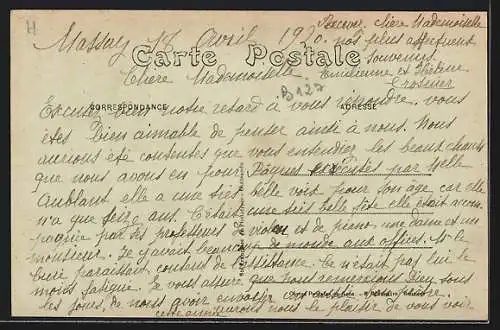 H
Massay 17 Avril 1910.
Recevez chère Mademoiselle
nos plus affectueux
Souvenirs.
Emilienne et
Carte Postale
Chère Mademoiselle
B127
CORRESPONDANCE
ADRESSE
Excusez bien notre retard à vous répondre. vous
êtes bien aimable de penser ainsi à nous. Nous
aurions été contentes que vous entendiez les beaux chants
que nous avons eu pour Pâques exécutés par Melle
Aublant elle a une très belle voix pour son âge car elle
n'a que seize ans. C'était une très belle fête elle était accom
pagnée par des professeurs de violon et de piano, une dame et un
monsieur. Il y avait beaucoup de monde aux offices. M. le
curé paraissait content de l'assistance. Ce n'était pas lui le
moins fatigué. Je vous assure que nous remercions Dieu tous
les jours, de nous avoir envoyé
cette année nous le plaisir de vous voir